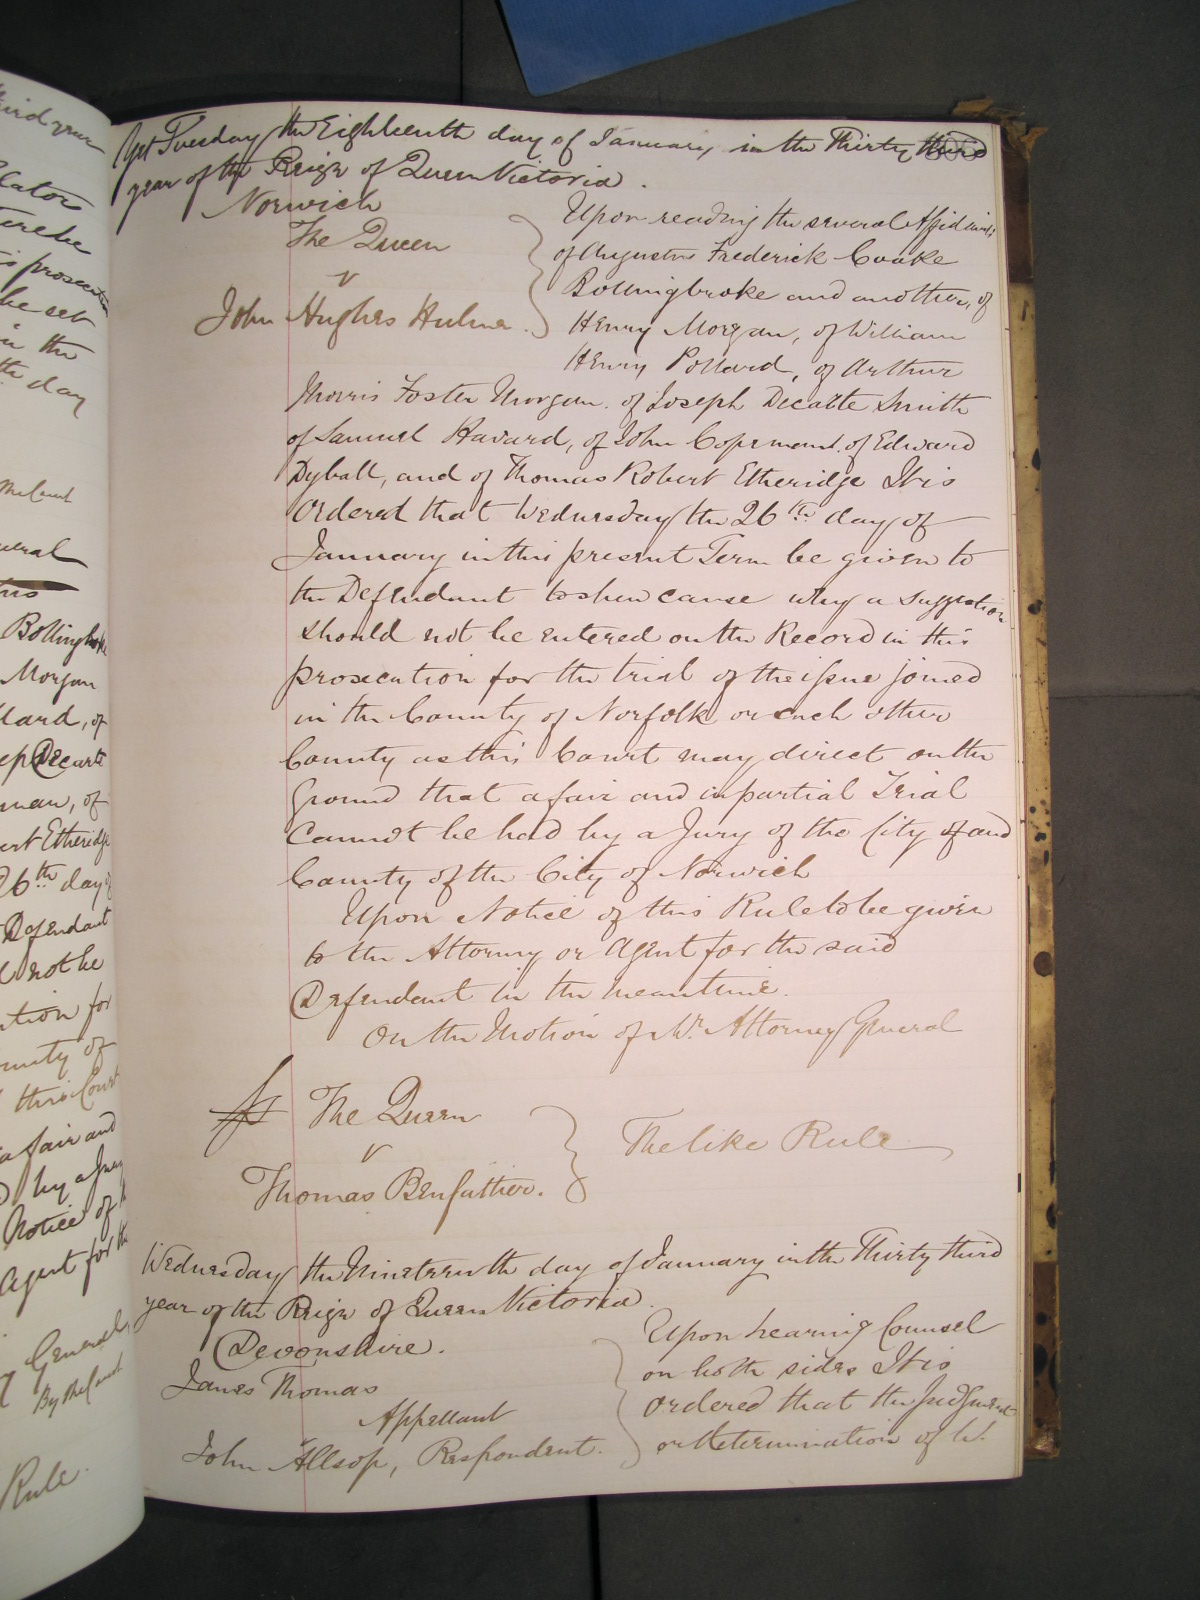 hird year
lator
Yet Tuesday the Eighteenth day of January in the Thirty third
year of the Reign of Queen Victoria.
Norwich
The Queen
v
John Hughes Hulme.
Upon reading the several Affidavits
of Augustus Frederick Cooke
Bollingbroke and another, of
Henry Morgan, of William
Henry Pollard, of Arthur
Morris Foster Morgan of Joseph Decarte Smith
of Samuel Havard, of John Copeman of Edward
Dyball, and of Thomas Robert Etheridge It is
Ordered that Wednesday the 26th day of
January in this present Term be given to
the Defendant to shew cause why a suggestion
should not be entered on the Record in this
prosecution for the trial of the issue joined
in the County of Norfolk or such other
County as this Court may direct on the
Ground that a fair and impartial Trial
cannot be had by a Jury of the City of and
County of the City of Norwich
Upon Notice of this Rule to be given
to the Attorney or Agent for the said
Defendant in the meantime.
On the Motion of Mr. Attorney General
The Queen
v
Thomas Benfather.
The like Rule
Wednesday the Nineteenth day of January in the Thirty third
year of the Reign of Queen Victoria.
Devonshire.
James Thomas
Appellant
John Allsop, Respondent.
Upon hearing Counsel
on both sides It is
ordered that the Judgment
or Determination of W.
is prosecution
be set
in the
th day
the Court
neral
Bollingbroke
Morgan
llard, of
eph Decarte
man, of
ert Etheridge
26th day of
Defendant
not be
ution for
unty of
this Court
a fair and
by a Jury
Notice of
Agent for the
General,
By the Court
Rule.